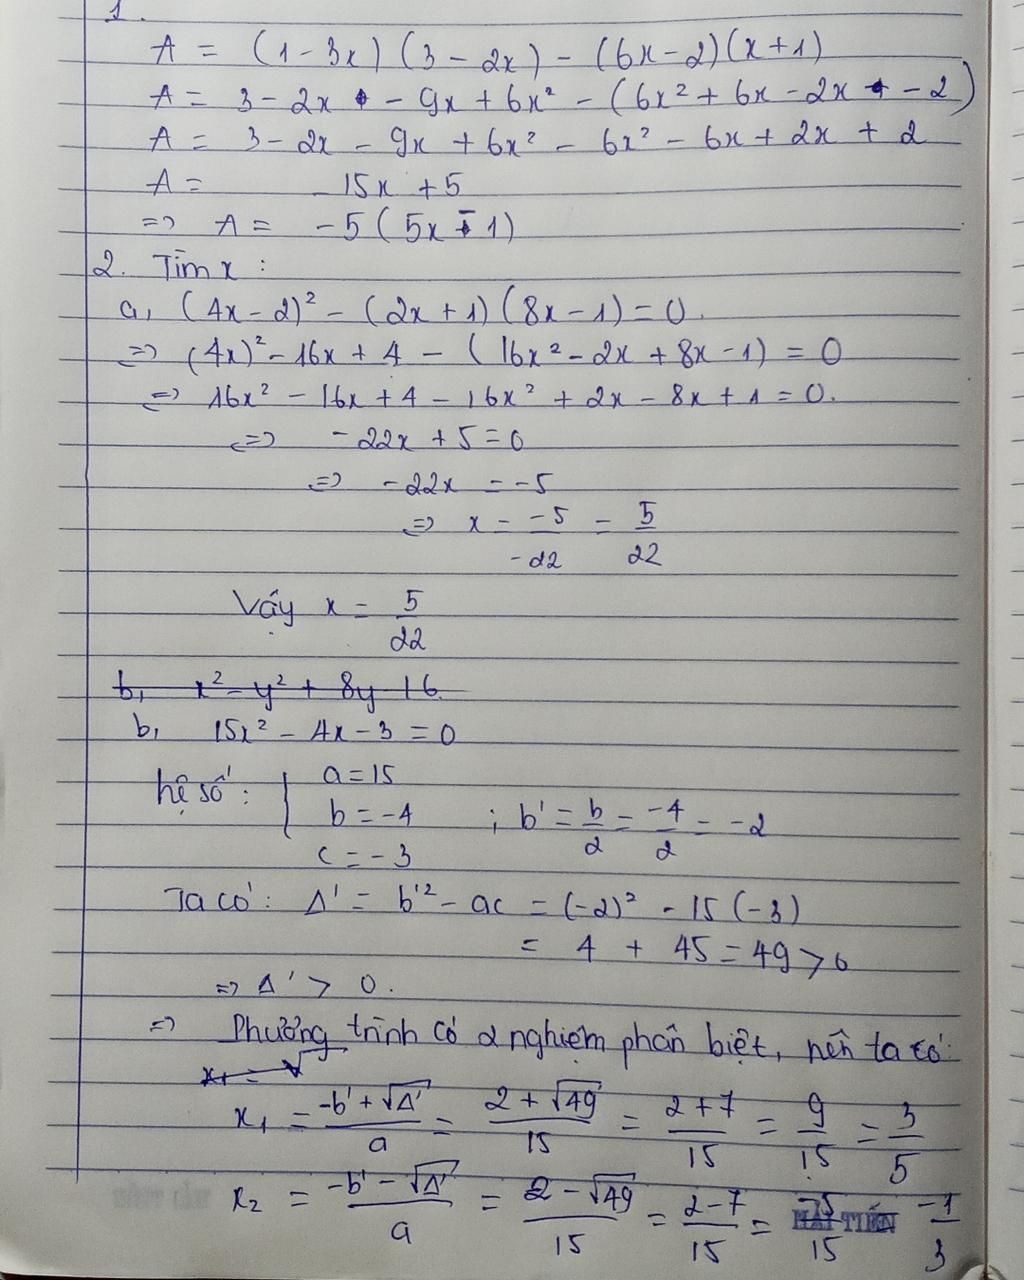 1.
A = (1 - 3x) (3 - 2x) - (6x - 2)(x + 1)
A = 3 - 2x - 9x + 6x² - (6x² + 6x - 2x - 2)
A = 3 - 2x - 9x + 6x² - 6x² - 6x + 2x + 2
A = - 15x + 5
=> A = - 5 ( 5x - 1)
2. Tìm x :
a, (4x - 2)² - (2x + 1) (8x - 1) = 0.
=> (4x)² - 16x + 4 - ( 16x² - 2x + 8x - 1) = 0
=> 16x² - 16x + 4 - 16x² + 2x - 8x + 1 = 0.
<=> - 22x + 5 = 0
=> - 22x = - 5
=> x = -5/-22 = 5/22
Vậy x = 5/22
b, x² - y² + 8y - 16
b, 15x² - 4x - 3 = 0
hệ số : { a = 15
b = - 4 ; b' = b/2 = -4/2 = - 2
c = - 3
Ta có : Δ' = b'² - ac = (-2)² - 15 (-3)
= 4 + 45 = 49 > 0
=> Δ' > 0.
=> Phương trình có 2 nghiệm phân biệt, nên ta có:
x₁ = √
x₁ = -b' + √Δ'/a = 2 + √49/15 = 2 + 7/15 = 9/15 = 3/5
x₂ = -b' - √Δ'/a = 2 - √49/15 = 2 - 7/15 = -5/15 = -1/3
HẢI TIẾN